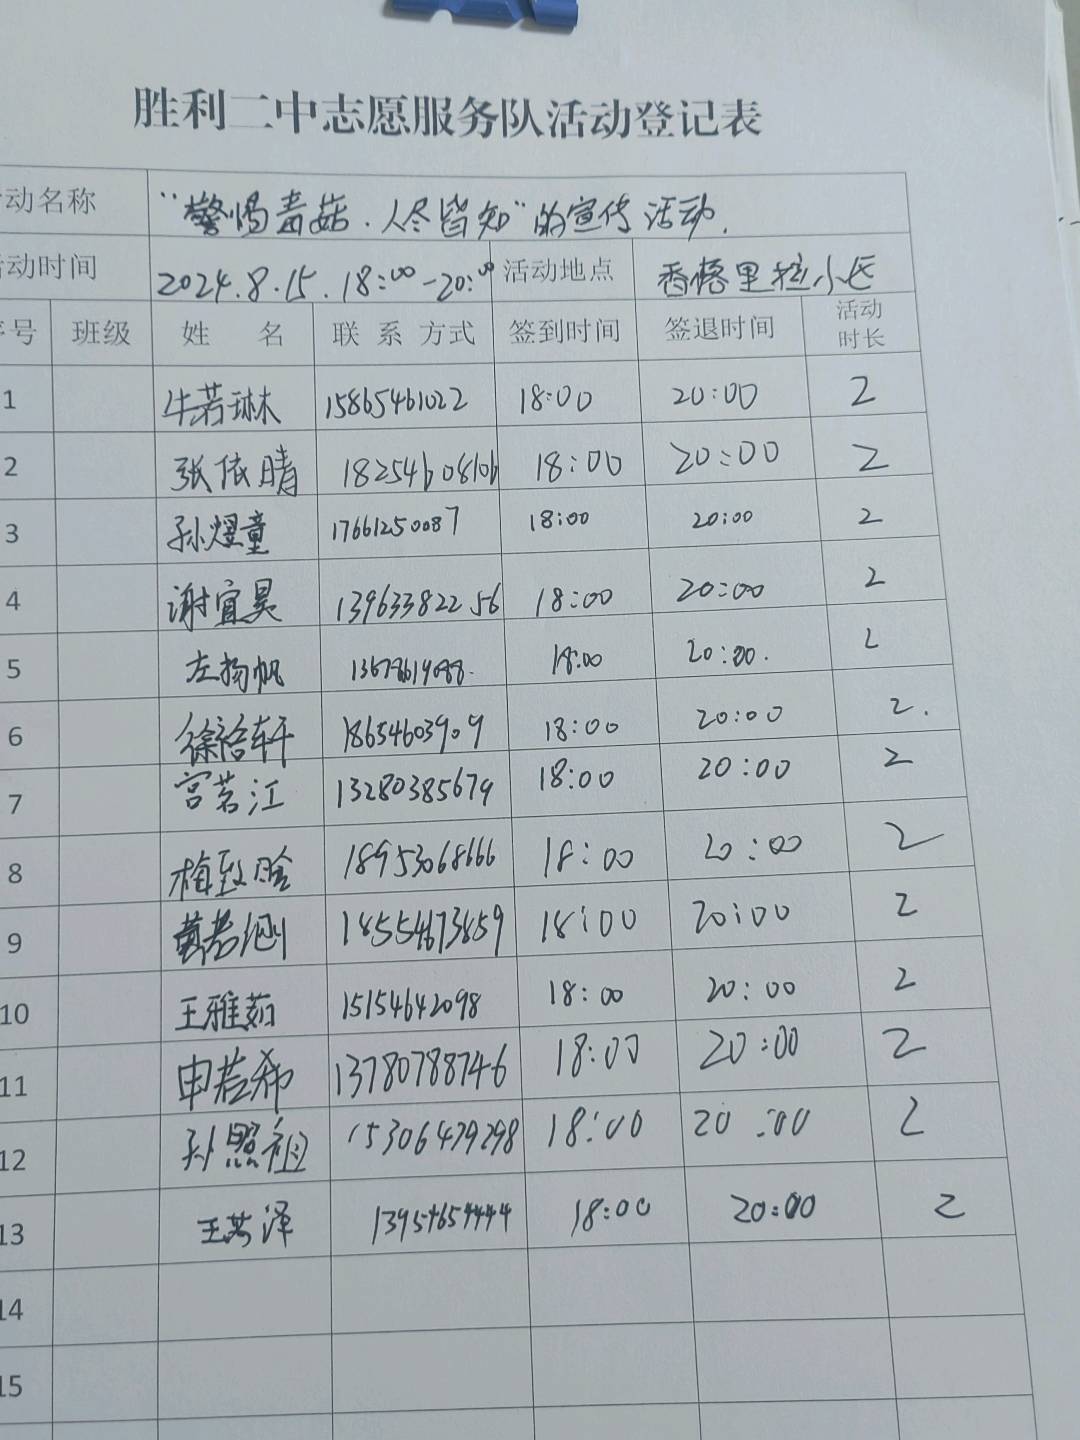 胜利二中志愿服务队活动登记表
动名称 “警惕毒菇.人尽皆知”的宣传活动.
动时间 2024.8.15.18:00-20:00 活动地点 香格里拉小区
号 班级 姓 名 联系方式 签到时间 签退时间 活动时长
1 牛若琳 15865461022 18:00 20:00 2
2 张依晴 18254608106 18:00 20:00 2
3 孙熠童 17661250087 18:00 20:00 2
4 谢宜昊 13963382256 18:00 20:00 2
5 左扬帆 18:00 20:00. 2
6 徐轩 18654603909 18:00 20:00 2.
7 宫茗江 13280385679 18:00 20:00 2
8 梅致晗 18953068666 18:00 20:00 2
9 黄 18554673859 18:00 20:00 2
10 王雅茹 15154642098 18:00 20:00 2
11 申若希 13780788746 18:00 20:00 2
12 孙照祖 15306479298 18:00 20:00 2
13 王芮泽 13954654444 18:00 20:00 2
14
15